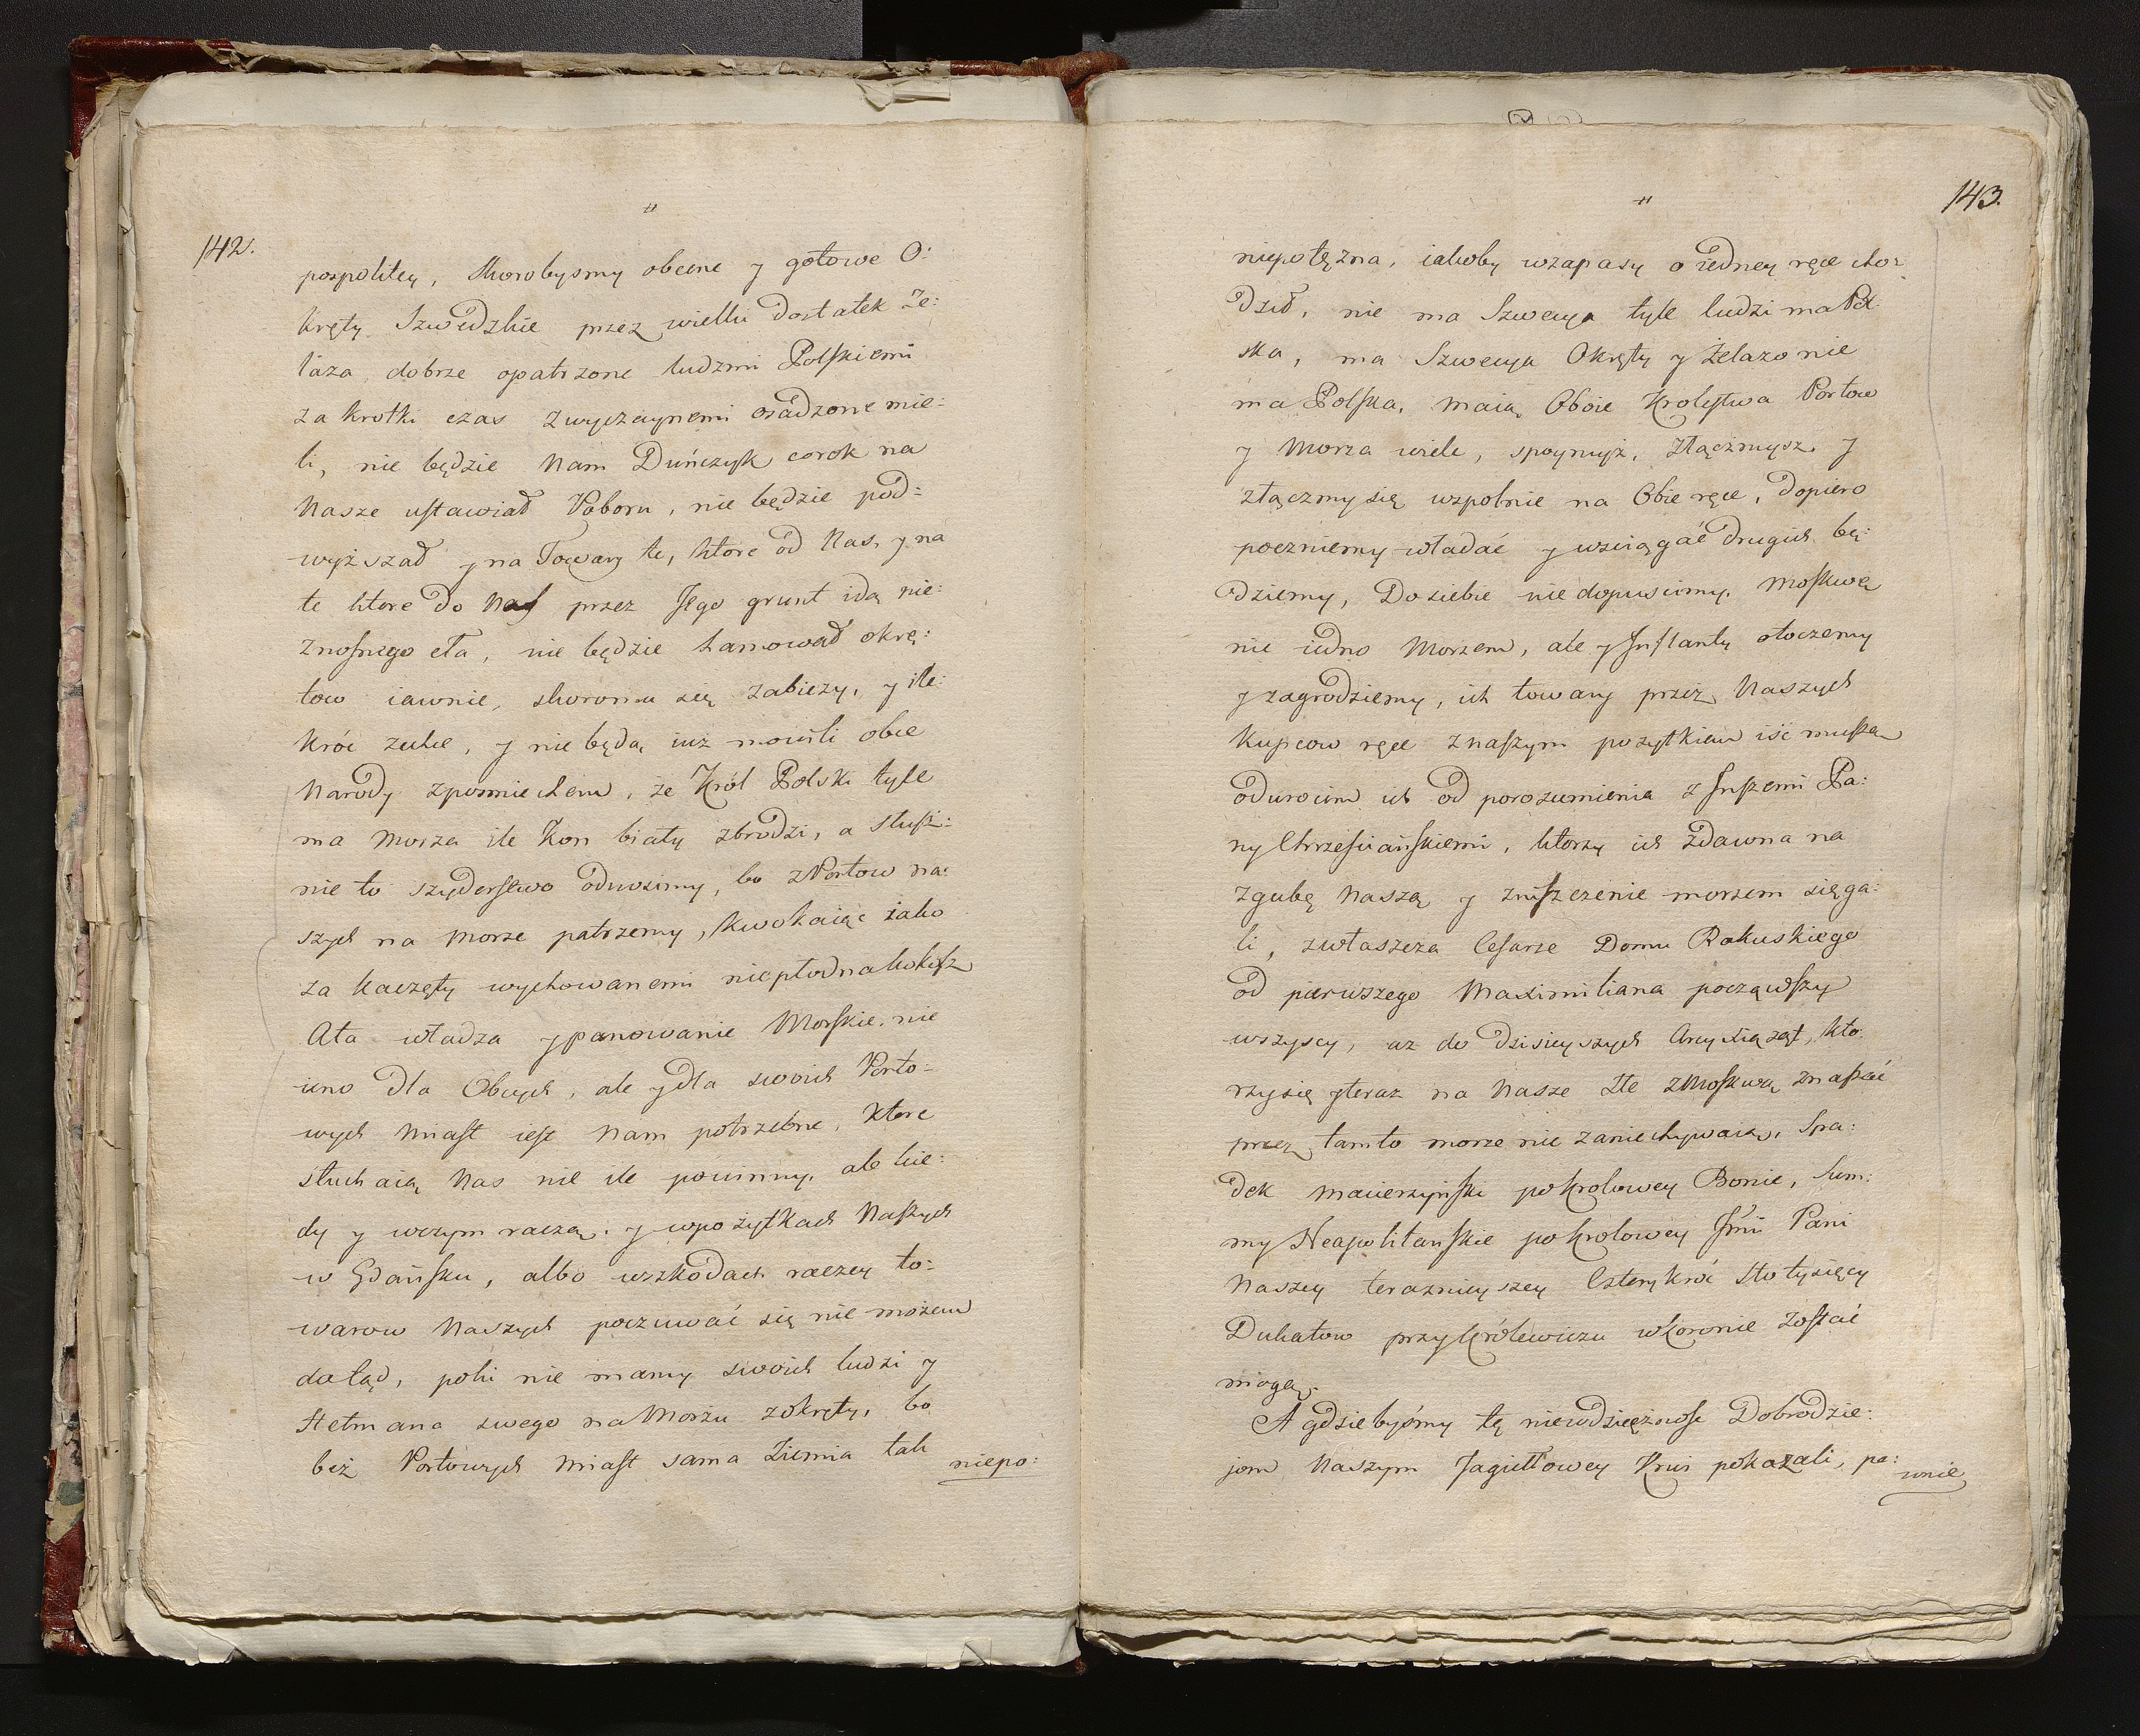 142.
pospolitey, skorobysmy obecne y gotowe O:
kręty Szwedzkie przez wielki dostatek że:
laza dobrze opatrzone ludzmi Polskiemi
za krotki czas zwyczaynemi osádzone mie:
li, nie będzie Nam Duńczyk corok na
Nasze ustawiał Poboru, nie będzie pod:
wyższał y na Towary te, ktore od Nas, y na
te ktore do Nas przez Jego grunt idą nie:
znosnego cła, nie będzie hamował okrę:
tow iawnie, skoromu się zabieży, y ile:
kroć zechce, y nie będą iuż mowili obce
Narody zposmiechem, że Król Polski tyle
ma Morza ile Kon biały zbrodzi, a słusz:
nie to szyderstwo odnosimy, bo z Portow na:
szych na Morze patrzemy, kwokaiąc iako
za Kaczęty wychowanemi niepłodna kokosz
Ata władza y panowanie Morskie, nie
ieno dla Obcych, ale y dla swoich Porto:
wych Miast iest Nam potrzebne, ktore
słuchaią Nas nie ile powinny, ale kie:
dy y wczym raczą. y wpożytkach Naszych
w Gdańsku, albo wszkodach raczey to:
warow Naszych poczuwać się nie możem
dotąd, poki nie mamy swoich ludzi y
Hetmana swego na Morzu zokręty, bo
bez Portowych Miast sama Ziemia tak
niepo:
143.
niepotężna, iakoby wzapasy o iedney ręce cho:
dził, nie ma Szwecya tyle ludzi ma Pol:
ska, ma Szwecya Okręty y Żelazo nie
ma Polska, maią Oboie Krolestwa Portow
y Morza wiele, spoymyż, złączmysz y
złączmy się wspolnie na Obie ręce, dopiero
poczniemy władać y wsciągać drugich bę:
dziemy, Do siebie nie dopuscimy. Moskwę
nie iedno Morzem, ale y Inflanty otoczemy
y zagrodziemy, ich towary przez Naszych
Kupcow ręce znaszym pożytkiem iść muszą
odwrocim ich od porozumienia z Inszemi Pa:
ny Chrzesciańskiemi, ktorzy ich zdawna na
zgubę Naszą y zniszczenie morzem sięga:
li, zwłaszcza Cesarze Domu Rakuskiego
od pierwszego Maximiliana począwszy
wszyscy, aż do dzisieyszych Arcyxiążąt, kto:
rzy się y teraz na Nasze złe z Moskwą znaszać
przez tamto morze nie zaniechywaią, Spa:
dek Macierzyński po Krolowey Bonie, Sum:
my Neapolitanskie po Krolowey Jmći Pani
Naszey teraznieyszey Czterykroć Sto tysięcy
Dukatow przy Królewiczu w Koronie zostać
mogą.
A gdziebyśmy tę niewdzięczność Dobrodzie:
jom Naszym Jagiełłowey Krwi pokazali, pe:
wnie